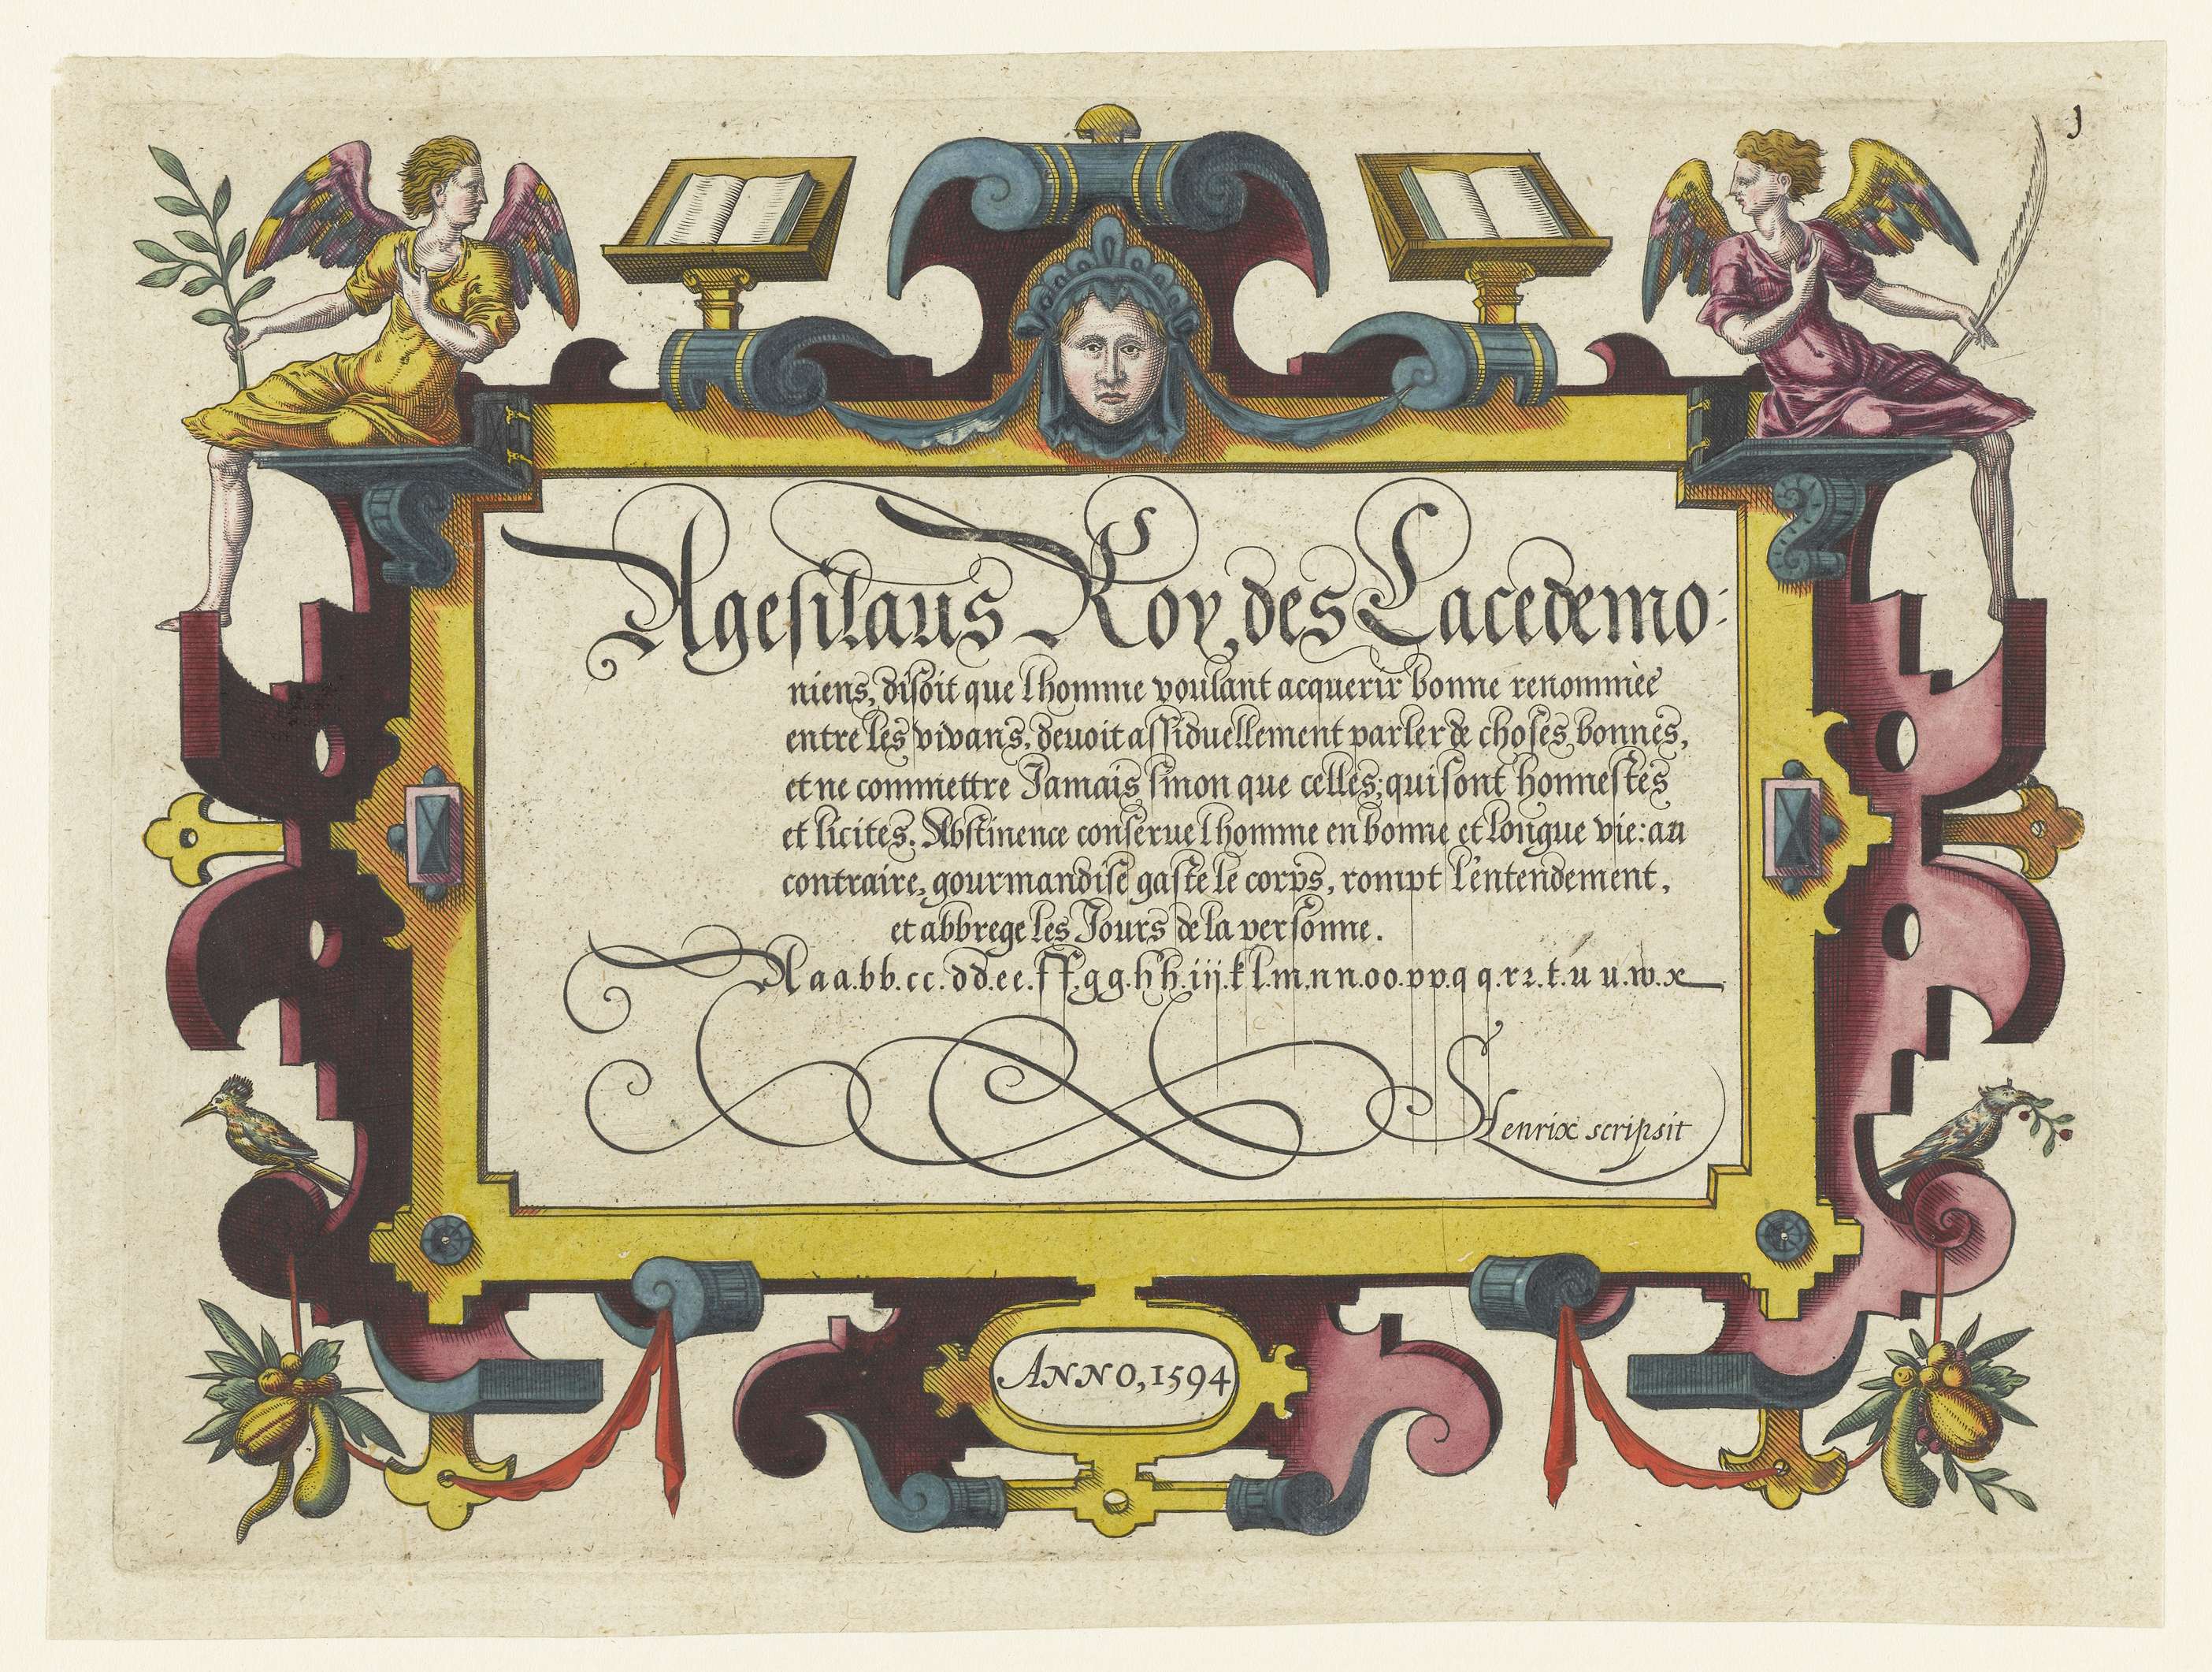 J
Agesilaus Roy des Lacedemo:
niens, disoit que lhomme voulant acquerir bonne renommèe
entre les vivans, deuoit assiduellement parler de choses bonnes,
et ne commettre Jamais sinon que celles, qui sont honnestes
et licites. Abstinence conserue lhomme en bonne et longue vie: au
contraire, gourmandise gaste le corps, rompt l'entendement,
et abbrege les Jours de la personne.
A a a.b b.c c.d d.e e.f f.g g.h h.i ij.k l.m.n n.o o.p p.q q.r r.t.u u.w.x
Henrix scripsit
ANNO, 1594